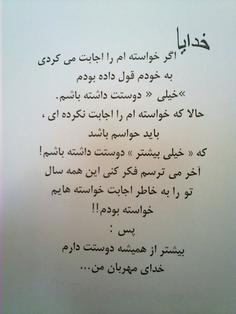 خدایا
اگر خواسته ام را اجابت می کردی
به خودم قول داده بودم
»خیلی « دوستت داشته باشم.
حالا که خواسته ام را اجابت نکرده ای ،
باید حواسم باشد
که « خیلی بیشتر » دوستت داشته باشم!
آخر می ترسم فکر کنی این همه سال
تو را به خاطر اجابت خواسته هایم
خواسته بودم!!
پس :
بیشتر از همیشه دوستت دارم
خدای مهربان من...